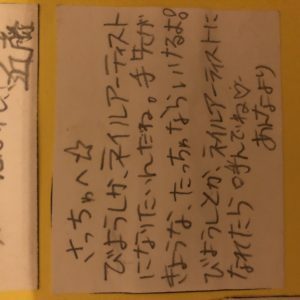 近藤
さっちゃへ☆
びようしか、ネイルアーティスト
になりたいんだね。手先が
きような、さっちゃなら、いけるよ。
びようしとか、ネイルアーティストに
なれたら呼んでね♡
あんなより